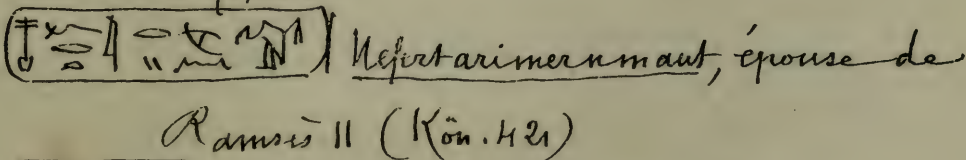 Nefertarimernmaut, épouse de
Ramsès II (Kön. 421)